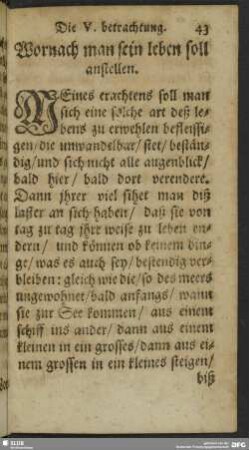 Die V. betrachtung. 43
Wornach man sein leben soll
anstellen.
MEines erachtens soll man
sich eine solche art deß le-
bens zu erwehlen befleissi-
gen/die unwandelbar/stet/bestän-
dig/und sich nicht alle augenblick/
bald hier/ bald dort verendere.
Dann jhrer viel sihet man diß
laster an sich haben/ daß sie von
tag zu tag jhre weise zu leben en-
dern/ und können ob keinem din-
ge/was es auch sey/bestendig ver-
bleiben: gleich wie die/so des meers
ungewohnet/bald anfangs/ wann
sie zur See kommen/ aus einem
schiff ins ander/ dann aus einem
kleinen in ein grosses/dann aus ei-
nem grossen in ein kleines steigen/
biß
SLUB